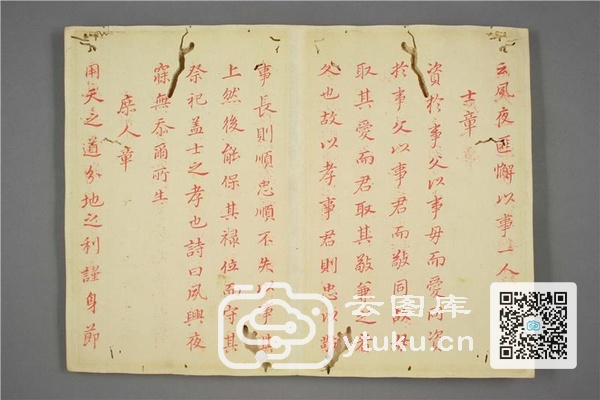 云夙夜匪懈以事一人
士章
資於事父以事母而愛同資
於事父以事君而敬同故母
取其愛而君取其敬兼之者
父也故以孝事君則忠以敬
事長則順忠順不失以事其
上然後能保其祿位而守其
祭祀盖士之孝也詩曰夙興夜
寐無忝爾所生
庶人章
用天之道分地之利謹身節
云图库
ytuku.cn